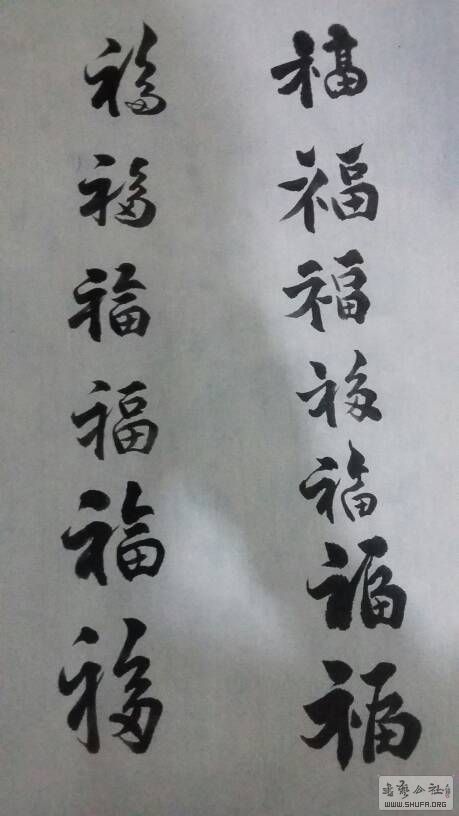 福福福福福福福
福福福福福福
WWW.SHUFA.ORG